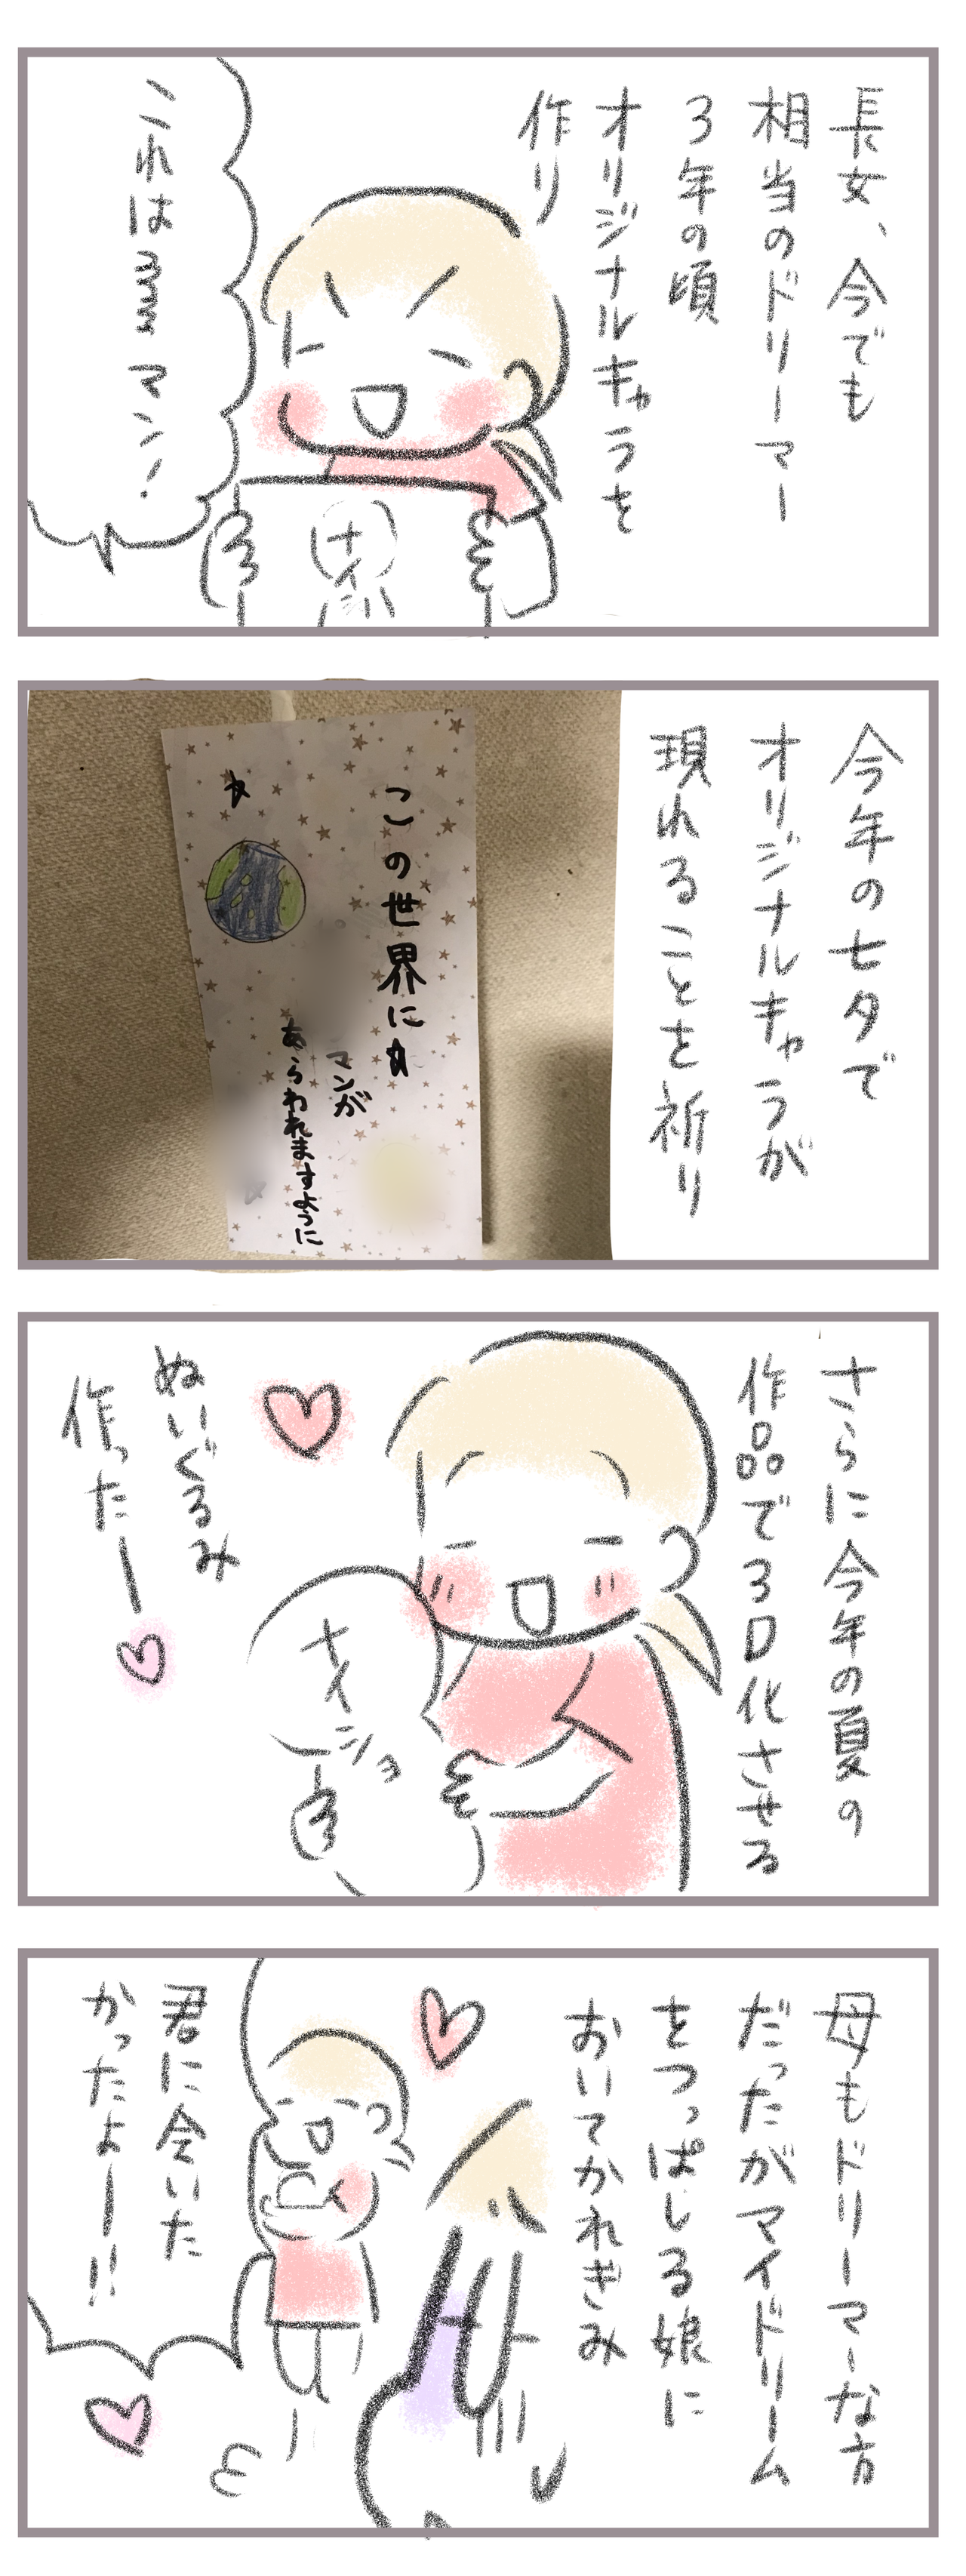 長女、今でも
相当のドリーマー
3年の頃
オリジナルキャラを
作り
これは
マン!
ナイ
今年の七夕で
オリジナルキャラが
現れることを祈り
この世界に
マンが
あらわれますように
さらに今年の夏の
作品で3D化させる
ナイショ
ぬいぐるみ
作ったー
母もドリーマーな方
だったがマイドリーム
をつっぱしる娘に
おいてかれぎみ
君に会いた
かったよー!!